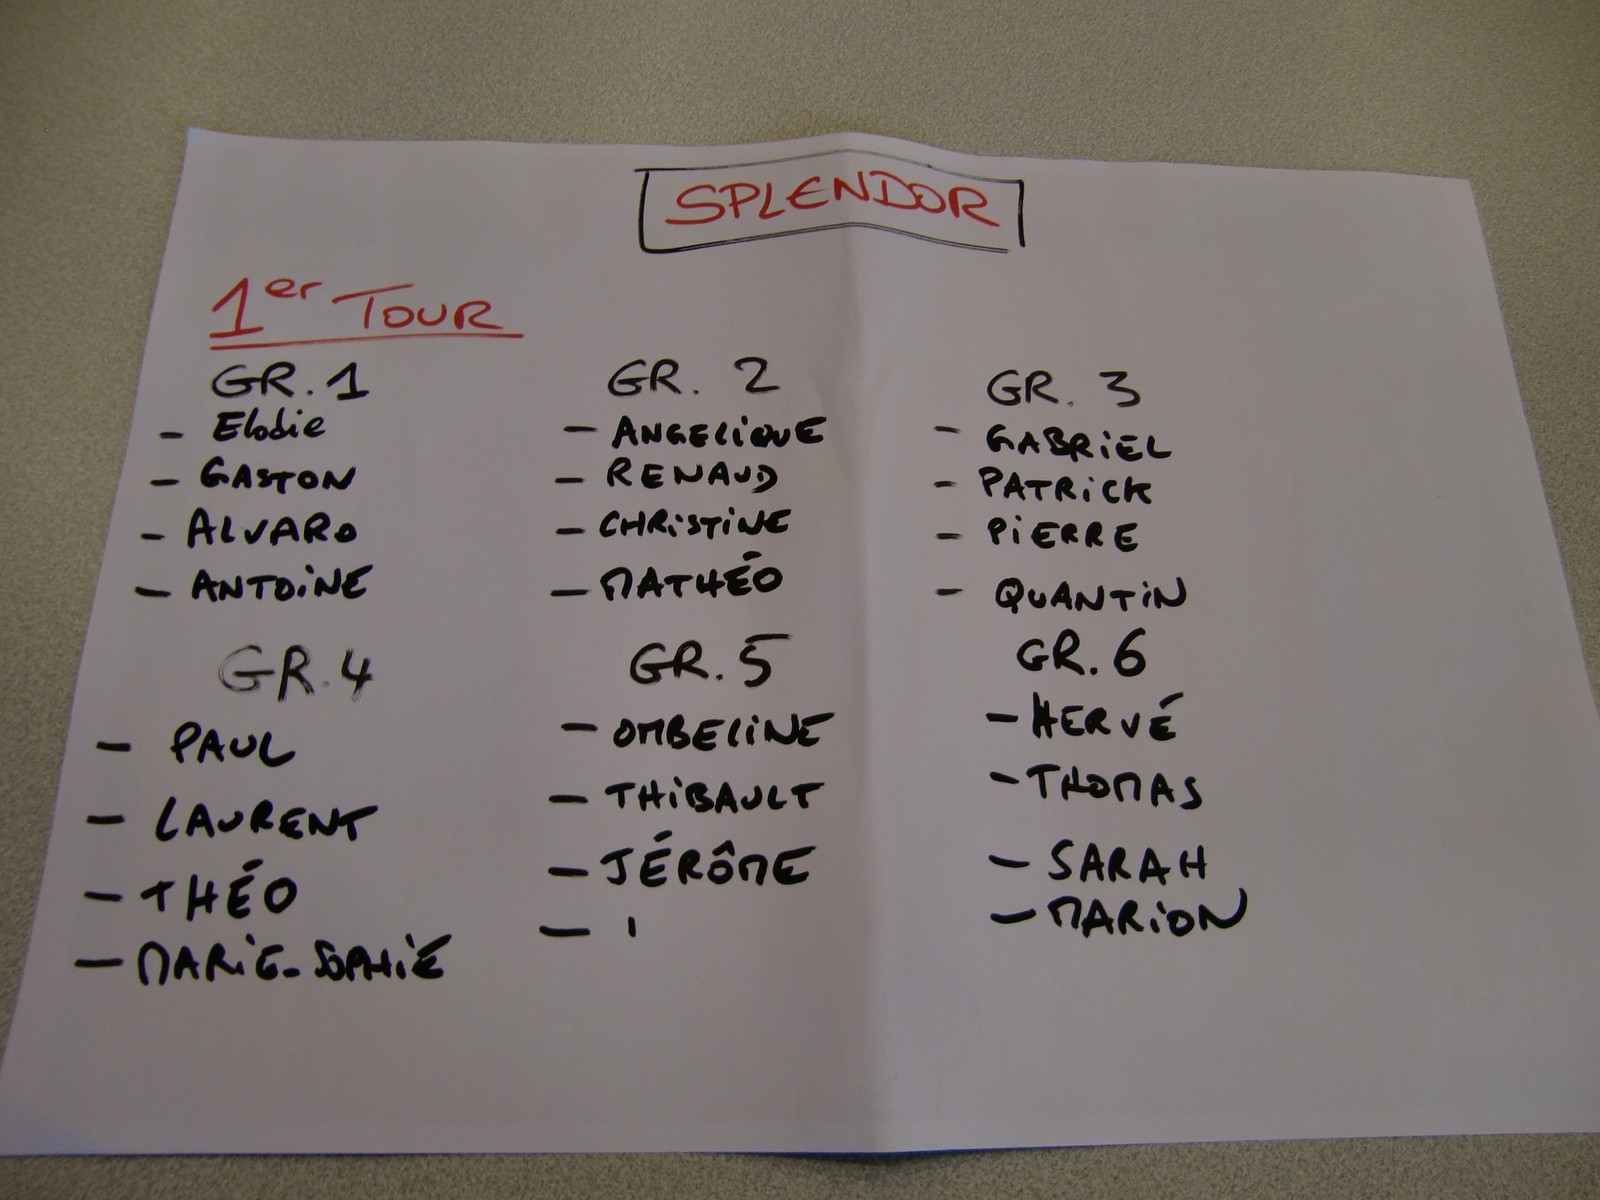 SPLENDOR
1er TOUR
GR. 1
- Elodie
- GASTON
- ALVARO
- ANTOINE
GR. 2
- ANGELIQUE
- RENAUD
- CHRISTINE
- MATHÉO
GR. 3
- GABRIEL
- PATRICK
- PIERRE
- QUANTIN
GR. 4
- PAUL
- LAURENT
- THÉO
- MARIE-SOPHIE
GR. 5
- OMBELINE
- THIBAULT
- JÉRÔME
- I
GR. 6
- HERVÉ
- THOMAS
- SARAH
- MARION